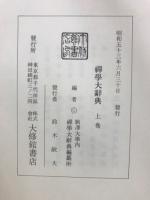 昭和五十三年六月三十日 發行
禪學大辭典 上巻
編者 © 駒澤大學內
禪學大辭典編纂所
發行者 鈴木敏夫
發行所
東京都千代田區
神田錦町三ノ二四
株式
會社
大修館書店